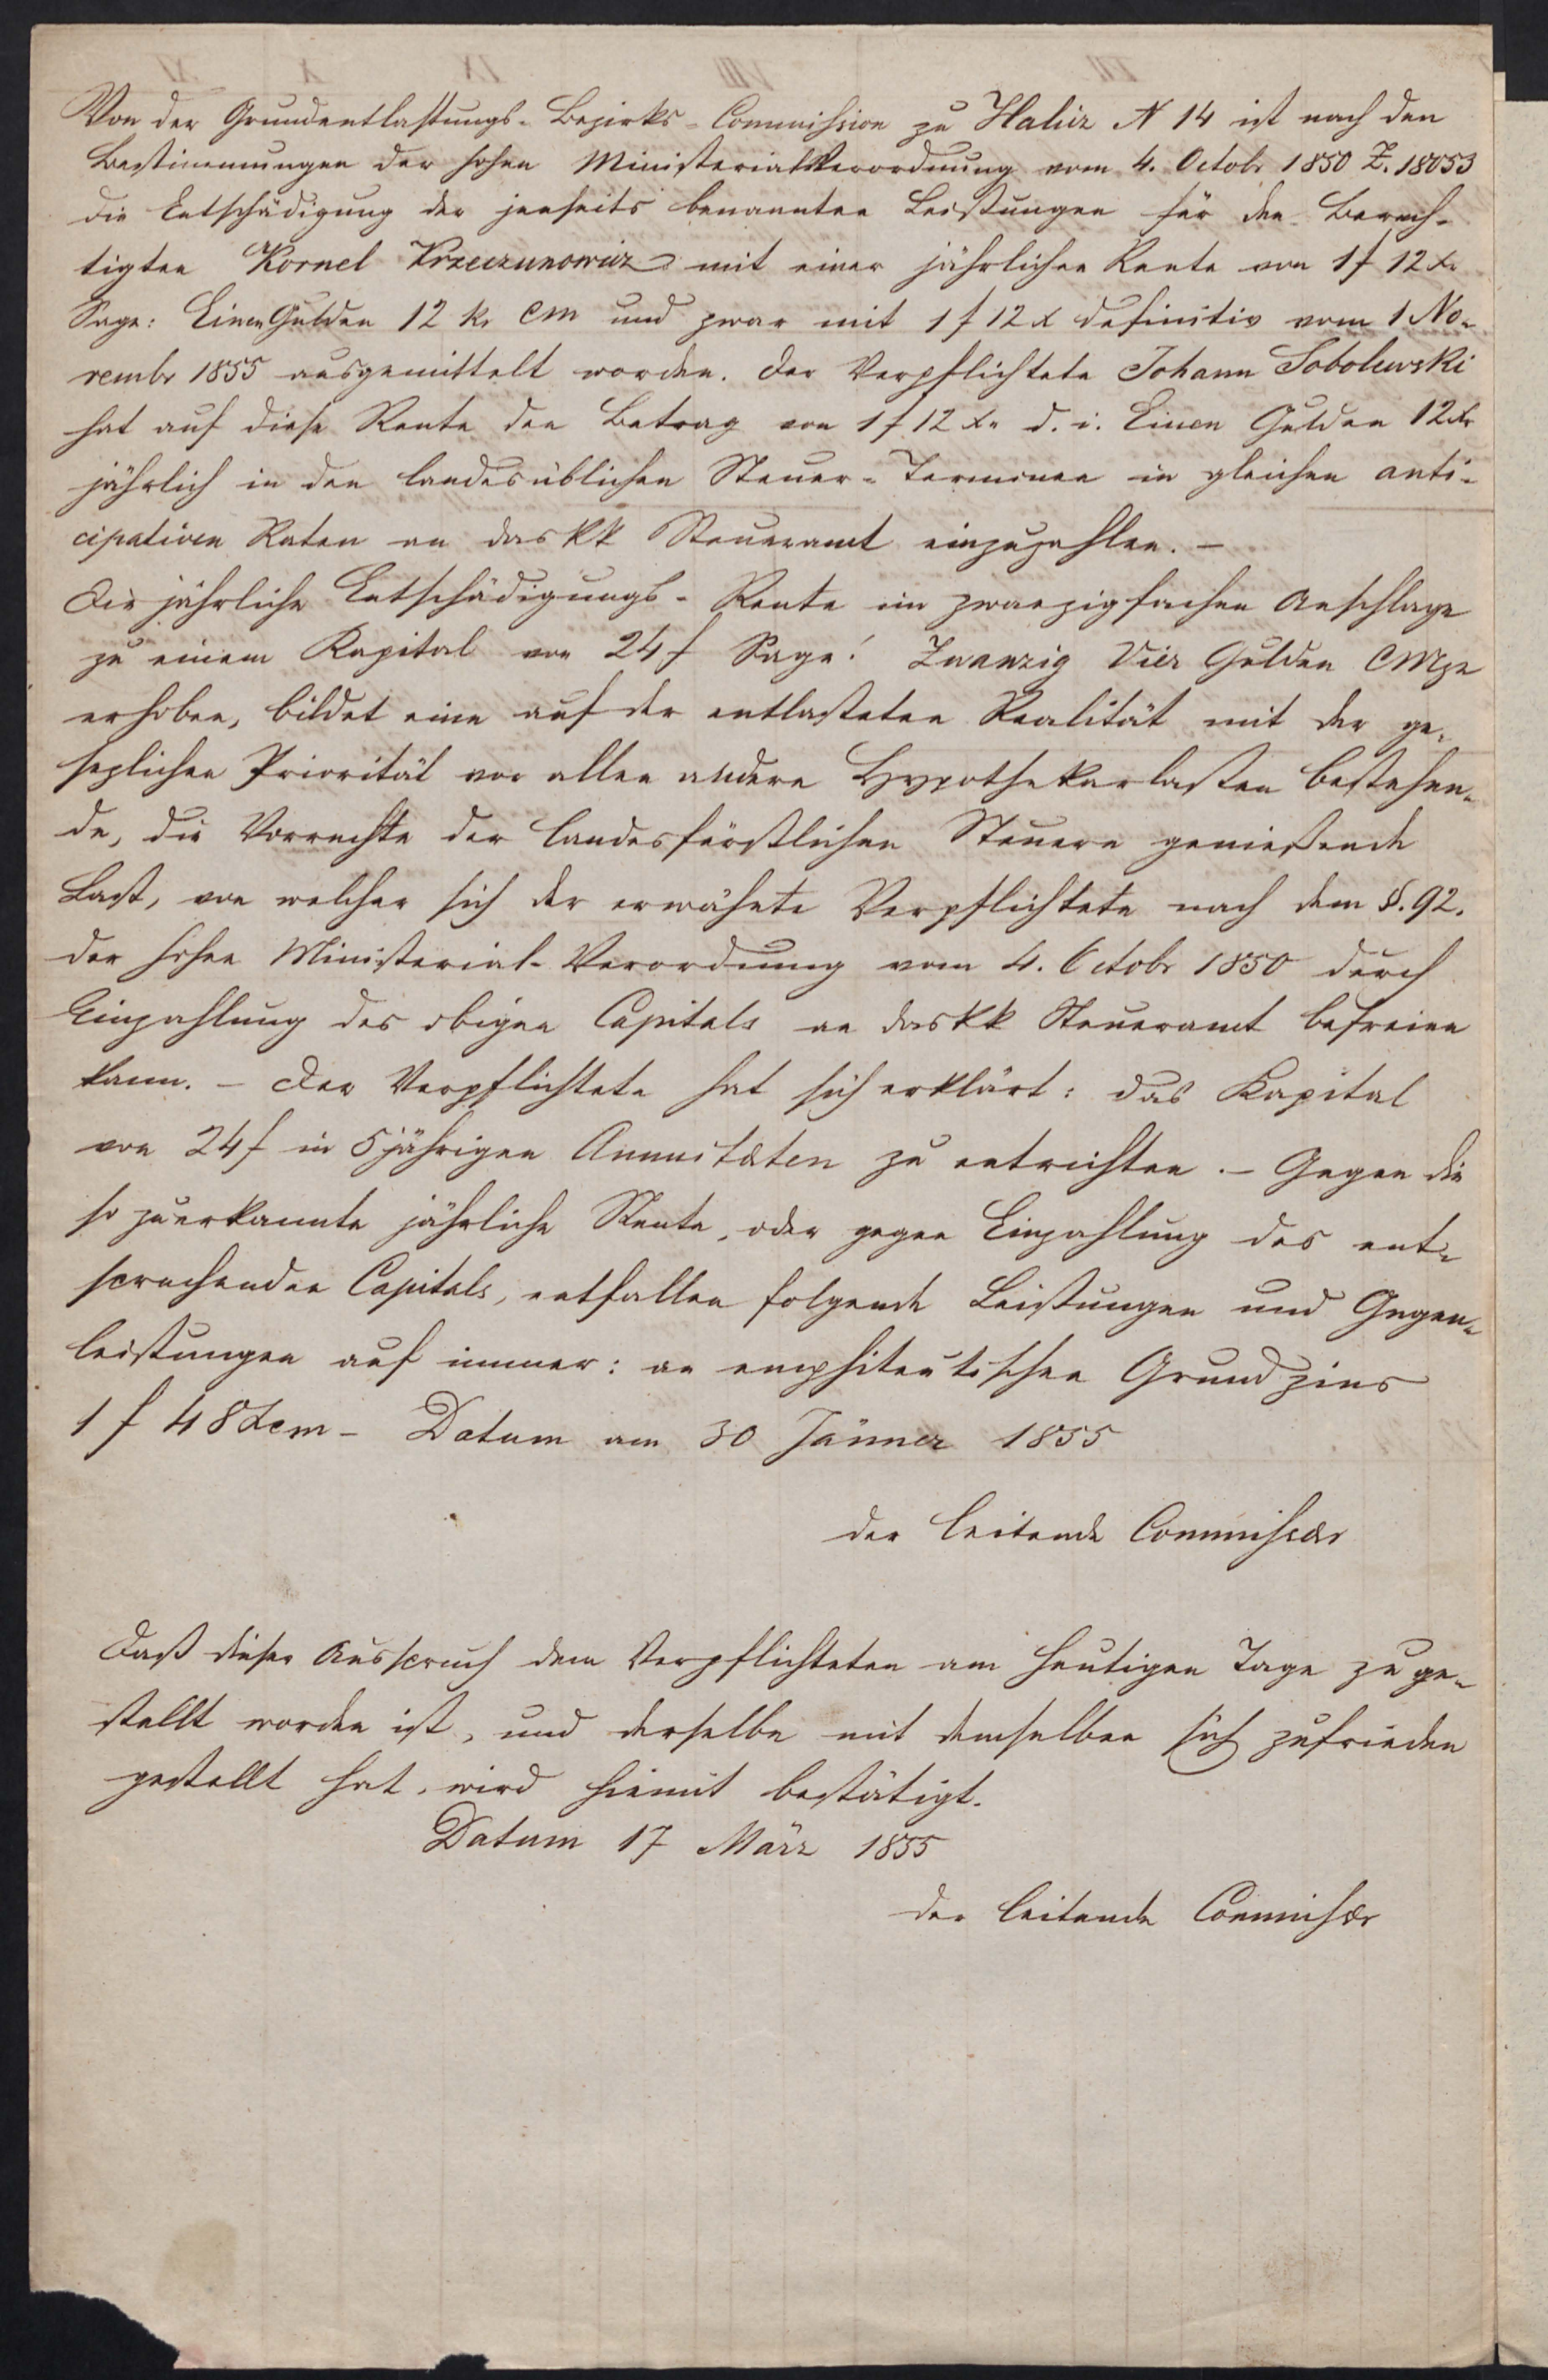 Von der Grundentlastungs-Bezirks-Commission zu Halicz N 14 ist nach den
Bestimmungen der hohen Ministerialverordnung vom 4. Octobr 1850 Z. 18053
die Entschädigung der jenseits benannten Leistungen für den Berech-
tigten Kornel Krzeczunowicz mit einer jährlichen Rente von 1 f 12 xr
Sage: Einen Gulden 12 kr CM und zwar mit 1 f 12 x definitiv vom 1 No-
vembr 1855 ausgemittelt worden. Der Verpflichtete Johann Sobolewski
hat auf diese Rente den Betrag von 1 f 12 xr d. i. Einen Gulden 12 xr
jährlich in den landesüblichen Steuer-Terminen in gleichen anti-
cipativen Raten an das kk Steueramt einzuzahlen. –
Die jährliche Entschädigungs-Rente im zwanzigfachen Anschlage
zu einem Kapital von 24 f Sage: Zwanzig Vier Gulden CMze
erhoben, bildet eine auf der entlasteten Realität mit der ge-
setzlichen Priorität vor allen andern Hypothekarlasten bestehen-
de, die Vorrechte der landesfürstlichen Steuern genießende
Last, von welcher sich der erwähnte Verpflichtete nach dem §. 92.
der hohen Ministerial-Verordnung vom 4. Octobr 1850 durch
Einzahlung des obigen Capitals an das kk Steueramt befreien
kann. – Der Verpflichtete hat sich erklärt: das Kapital
von 24 f in 5 jährigen Annuitæten zu entrichten. – Gegen die
so zuerkannte jährliche Rente, oder gegen Einzahlung des ent-
sprechenden Capitals, entfallen folgende Leistungen und Gegen-
leistungen auf immer: an emphiteutischen Grundzins
1 f 48 x cm – Datum am 30 Jänner 1855
der leitende Commissær
Daß dieser Ausspruch dem Verpflichteten am heutigen Tage zuge-
stellt worden ist, und derselbe mit demselben sich zufrieden
gestellt hat, wird hiemit bestätigt.
Datum 17 März 1855
der leitende Commissær